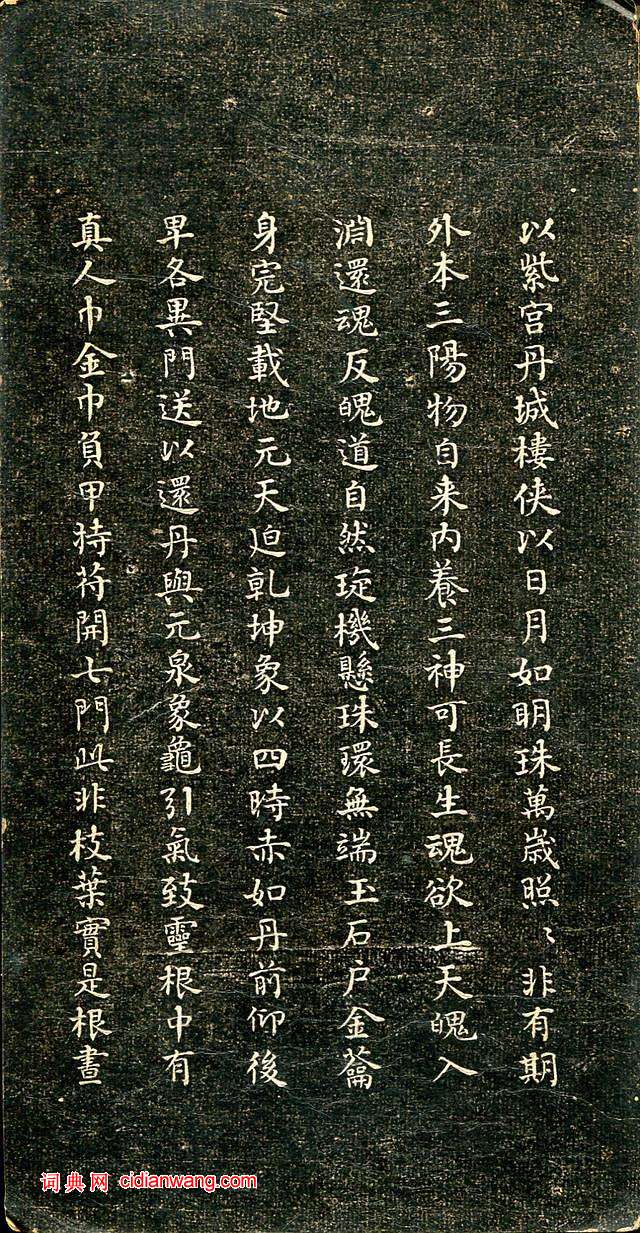 以紫宫丹城樓侠以日月如明珠萬歳照〻非有期
外本三陽物自来内養三神可長生魂欲上天魄入
淵還魂反魄道自然琁機懸珠環無端玉石户金籥
身完堅載地元天迫乾坤象以四時赤如丹前仰後
卑各異門送以還丹與元泉象龜引氣致靈根中有
真人巾金巾負甲持苻開七門此非枝葉實是根晝
词典网:cidianwang.com